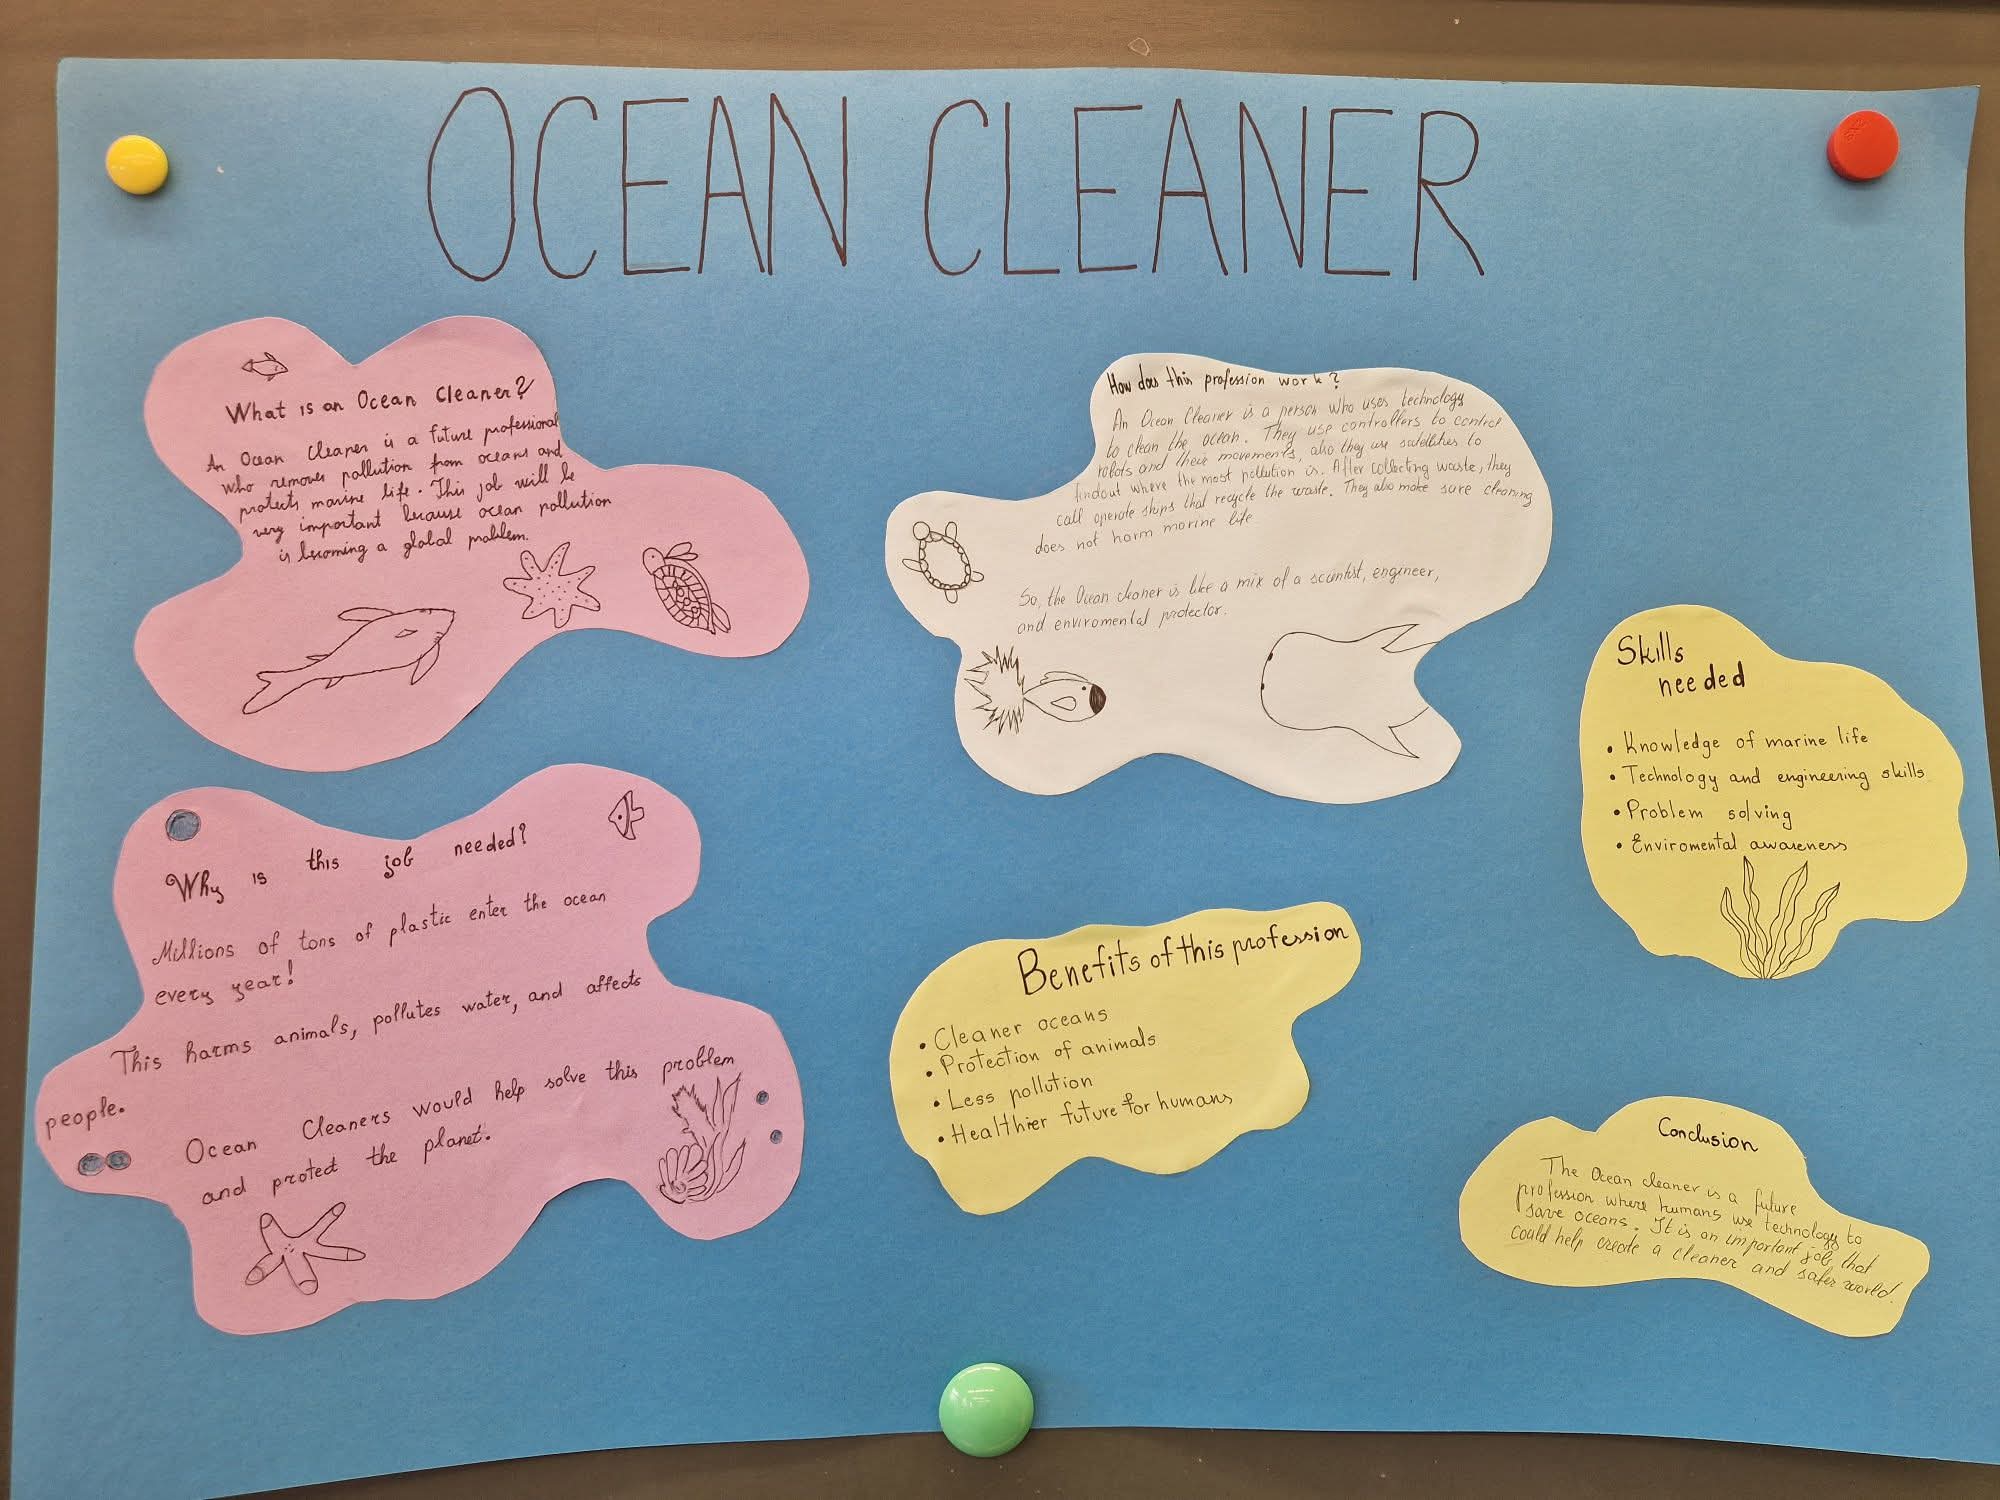 OCEAN CLEANER
What is an Ocean Cleaner?
An Ocean Cleaner is a future professional
who removes pollution from oceans and
protects marine life. This job will be
very important because ocean pollution
is becoming a global problem.
How does this profession work?
An Ocean Cleaner is a person who uses technology
to clean the ocean. They use controllers to control
robots and their movements, also they use satellites to
findout where the most pollution is. After collecting waste, they
call operate ships that recycle the waste. They also make sure cleaning
does not harm marine life
So, the Ocean cleaner is like a mix of a scientist, engineer,
and enviromental protector.
Skills
needed
• Knowledge of marine life
• Technology and engineering skills
• Problem solving
• Enviromental awareness
Why is this job needed?
Millions of tons of plastic enter the ocean
every year!
This harms animals, pollutes water, and affects
people.
Ocean Cleaners would help solve this problem
and protect the planet.
Benefits of this profession
• Cleaner oceans
• Protection of animals
• Less pollution
• Healthier future for humans
Conclusion
The Ocean cleaner is a future
profession where humans use technology to
save oceans. It is an important job that
could help create a cleaner and safer world.